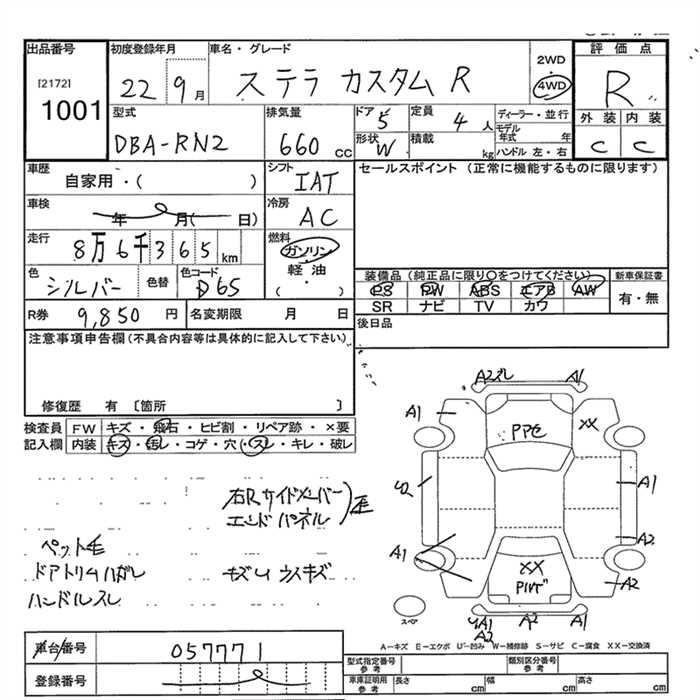 出品番号
[2172]
1001
初度登録年月
22 9月
車名・グレード
ステラ カスタム R
2WD
4WD
評価点
R
外装 内装
C C
型式
DBA-RN2
排気量
660 CC
ドア
5
形状
W
定員
4 人
積載
kg
ディーラー・並行
モデル年式 年
ハンドル 左・右
車歴
自家用・( )
シフト
IAT
セールスポイント (正常に機能するものに限ります)
車検
年 月( 日)
冷房
AC
走行
8万6千365km
燃料
ガソリン
軽油
( )
色
シルバー
色替
色コード
D65
装備品(純正品に限り○をつけてください)
PS PW ABS エアB AW
SR ナビ TV カワ
新車保証書
有・無
R券
9,850円
名変期限 月 日
後日品
注意事項申告欄(不具合内容等は具体的に記入して下さい)
修復歴 有 〔箇所 〕
検査員記入欄
FW キズ・飛石・ヒビ割・リペア跡・×要
内装 キズ・汚レ・コゲ・穴・スレ・キレ・破レ
A2ズレ A1
A1 PPC XX
U2 A1
A1 A2
XX A2
A2 A1
A2
スペア
右Rサイドメンバー
エンドパネル
歪
ペット毛
ドアトリムハガレ
ハンドルスレ
キズ凹 ウスキズ
A-キズ E-エクボ U-凹み W-補修跡 S-サビ C-腐食 XX-交換済
車台番号
057771
登録番号
型式指定番号
参考
類別区分番号
参考
車庫証明用
参考
長さ cm 幅 cm 高さ cm